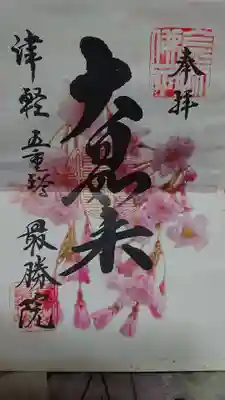 奉拝
大日如来
津軽五重塔 最勝院